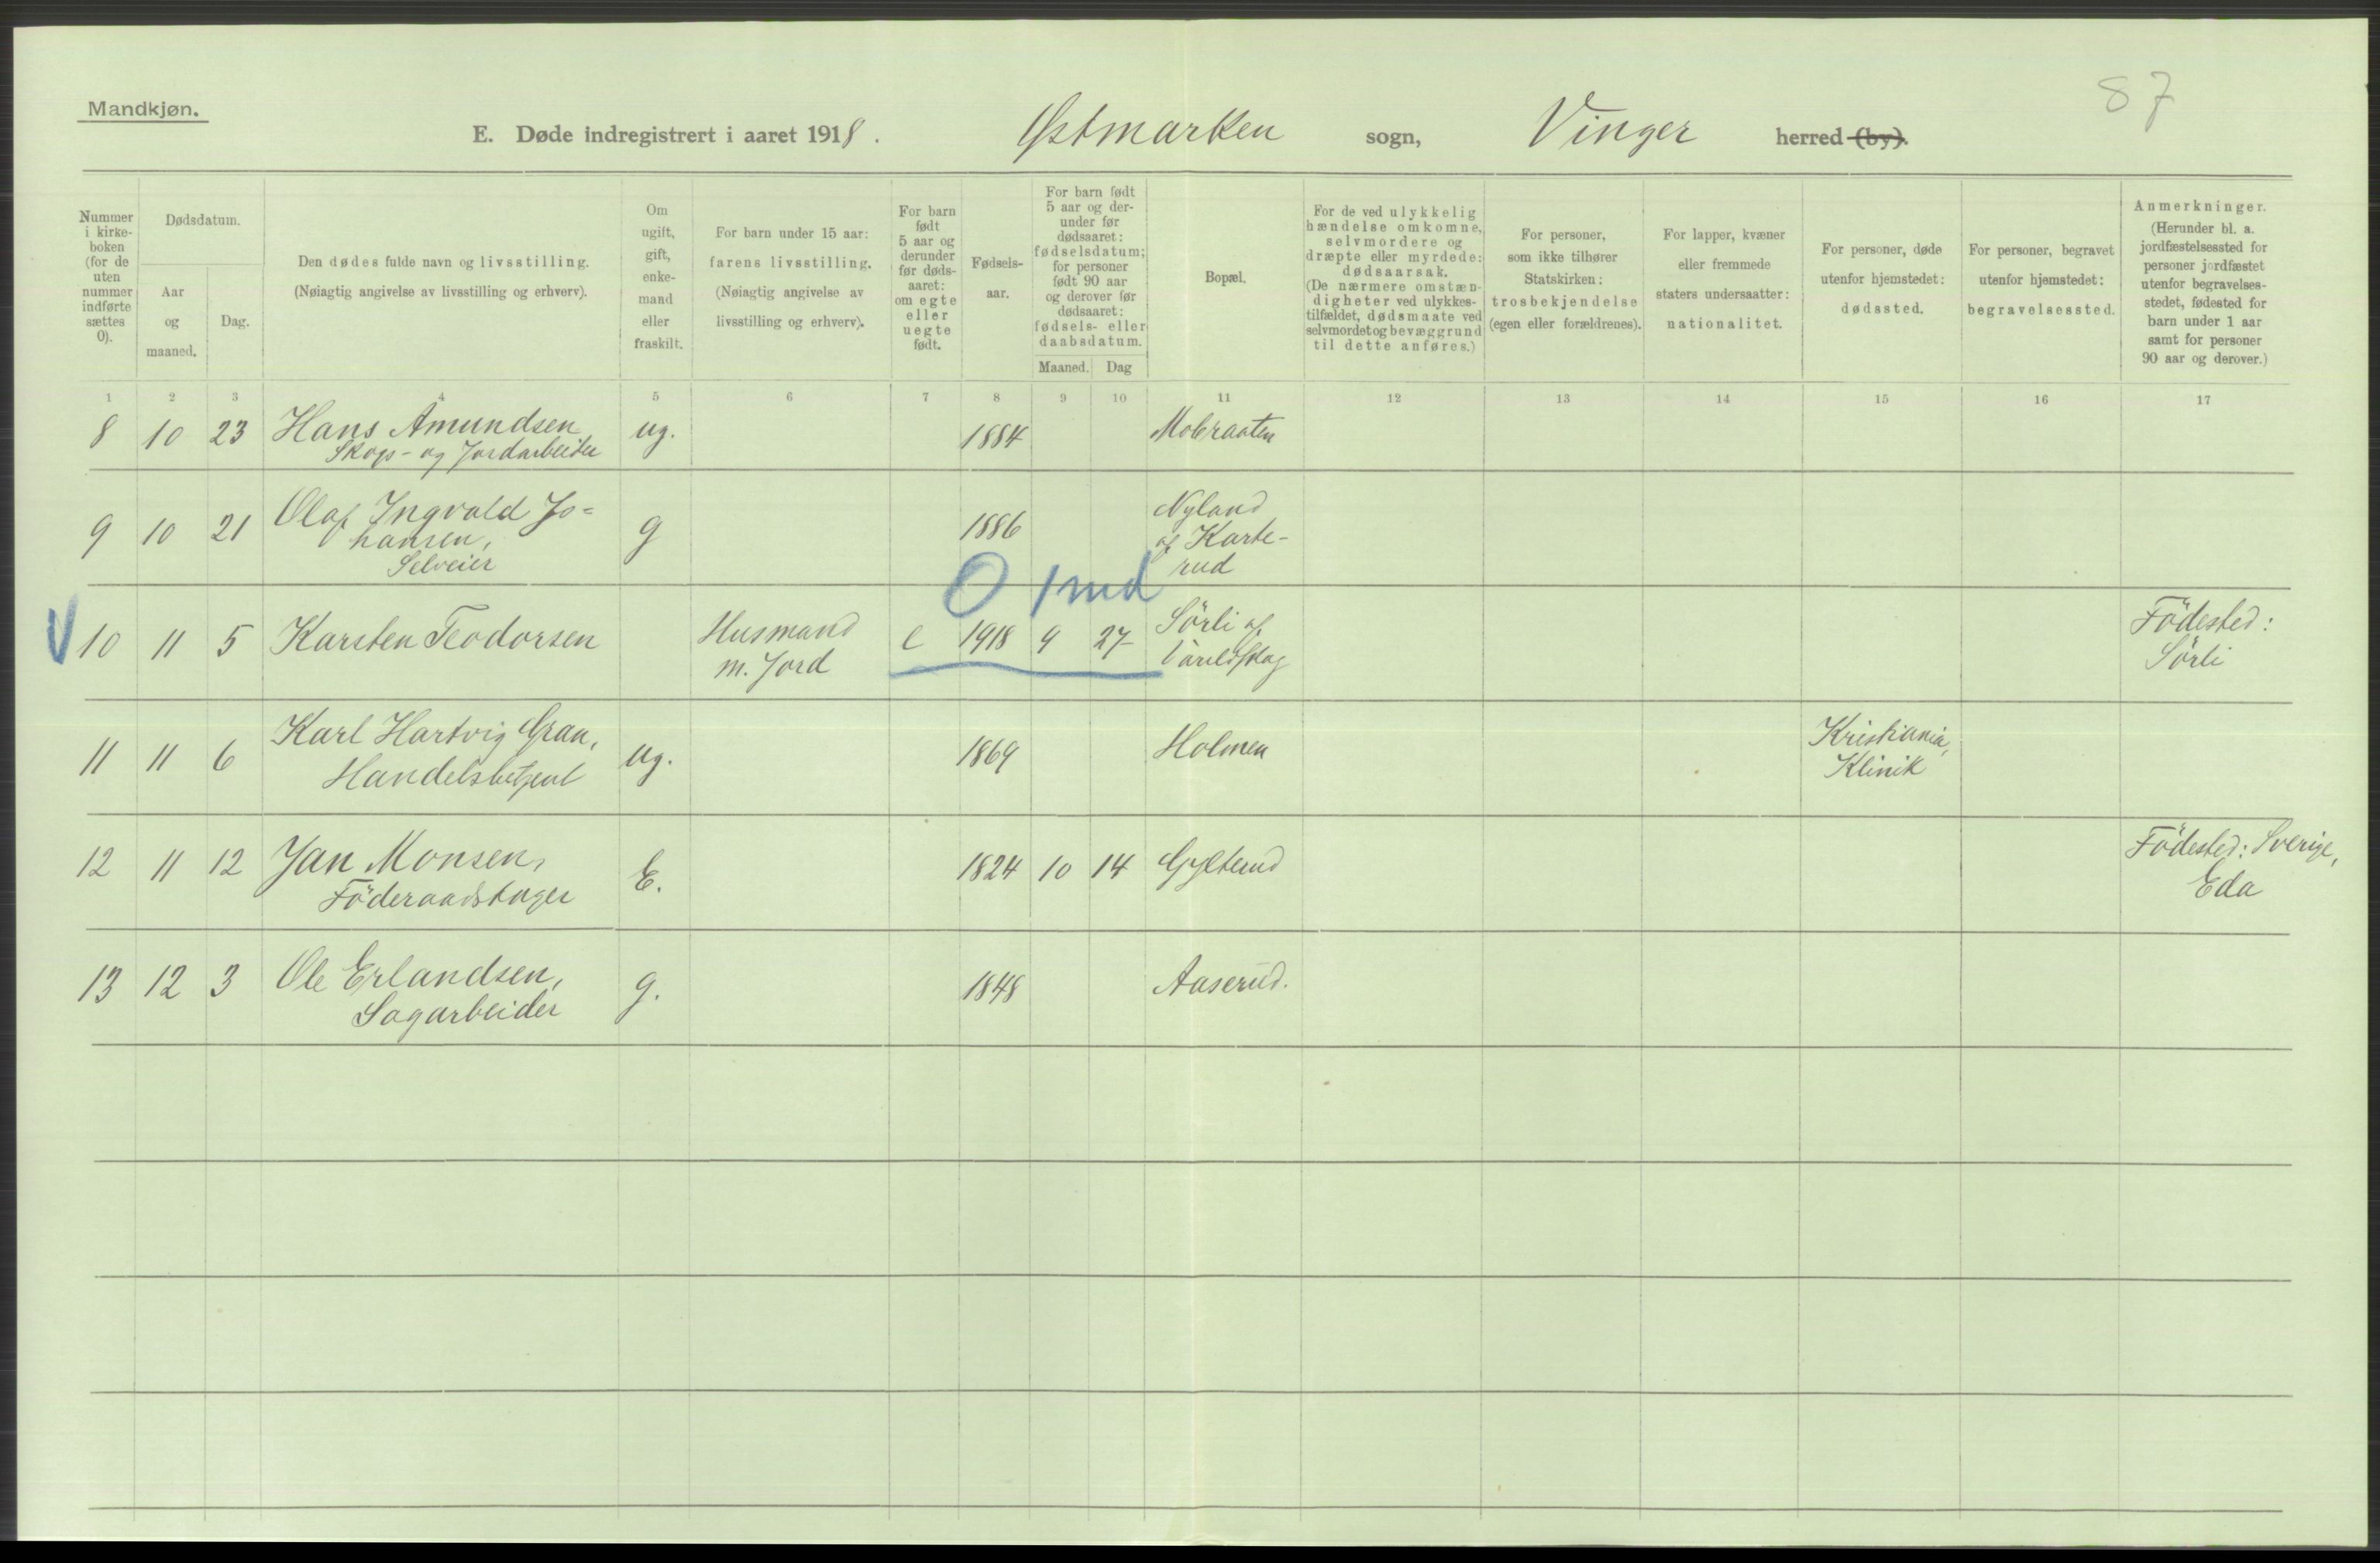 87
Mandkjøn.
E. Døde indregistrert i aaret 1918. Østmarken sogn, Vinger herred (by).
Nummer i kirke-boken (for de uten nummer indførte sættes 0).
Dødsdatum.
Aar og maaned.
Dag.
Den dødes fulde navn og livsstilling.
(Nøiagtig angivelse av livsstilling og erhverv).
Om ugift, gift, enke-mand eller fraskilt.
For barn under 15 aar: farens livsstilling.
(Nøiagtig angivelse av livsstilling og erhverv).
For barn født 5 aar og derunder før døds-aaret: om egte eller uegte født.
Fødsels-aar.
For barn født 5 aar og der-under før dødsaaret: fødselsdatum; for personer født 90 aar og derover før dødsaaret: fødsels- eller daabsdatum.
Maaned. Dag
Bopæl.
For de ved ulykkelig hændelse omkomne, selvmordere og dræpte eller myrdede: dødsaarsak.
(De nærmere omstæn-digheter ved ulykkes-tilfældet, dødsmaate ved selvmordet og bevæggrund til dette anføres.)
For personer, som ikke tilhører Statskirken: trosbekjendelse (egen eller forældrenes).
For lapper, kvæner eller fremmede staters undersaatter: nationalitet.
For personer, døde utenfor hjemstedet: dødssted.
For personer, begravet utenfor hjemstedet: begravelsessted.
Anmerkninger.
(Herunder bl. a. jordfæstelsessted for personer jordfæstet utenfor begravelses-stedet, fødested for barn under 1 aar samt for personer 90 aar og derover.)
1 2 3 4 5 6 7 8 9 10 11 12 13 14 15 16 17
8 10 23 Hans Amundsen ug. 1884
Skogs- og Jordarbeider
9 10 21 Olaf Ingvald Jo= g 1886 Nyland
hansen, af Karte-
Selveier rud
0 1 md
V 10 11 5 Karsten Teodorsen Husmand e 1918 9 27 Sörli af Födested:
m. Jord Sörli
11 11 6 Karl Hartvig Gran, ug. 1869 Holmen Kristiania,
Handelsbetjent Klinik
12 11 12 Jan Monsen, E. 1824 10 14 Gylterud Födested: Sverige,
Föderaadstager Eda
13 12 3 Ole Erlandsen, g. 1848 Aaserud.
Sagarbeider